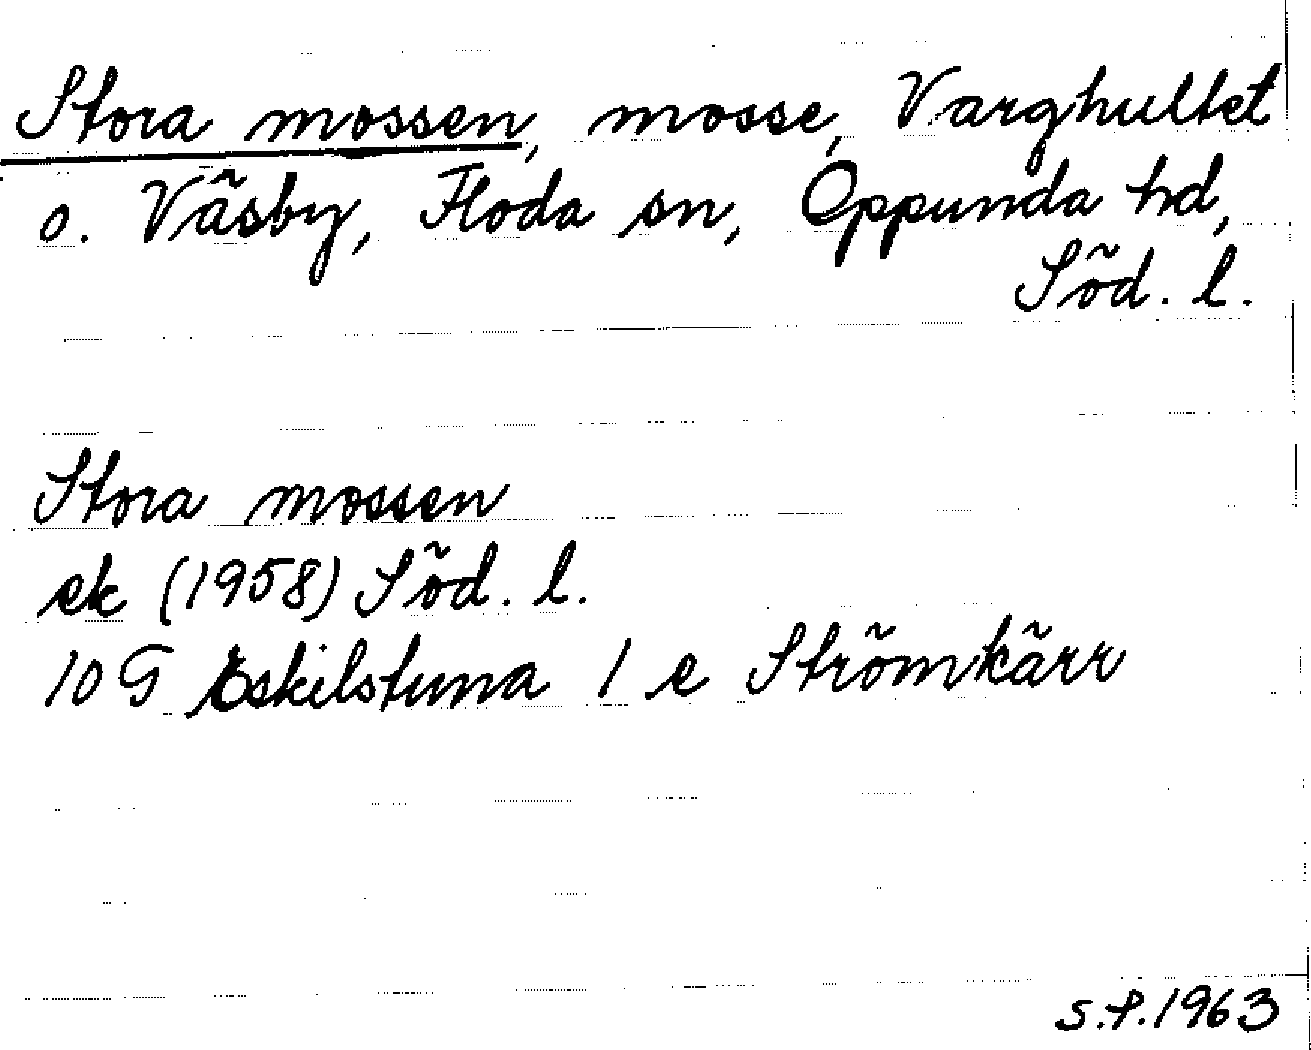 Stora mossen, mosse, Varghultet
o. Väsby, Floda sn, Oppunda hd,
Söd. l.
Stora mossen
ek (1958) Söd. l.
10 G Eskilstuna 1 e Strömkärr
S.P. 1963